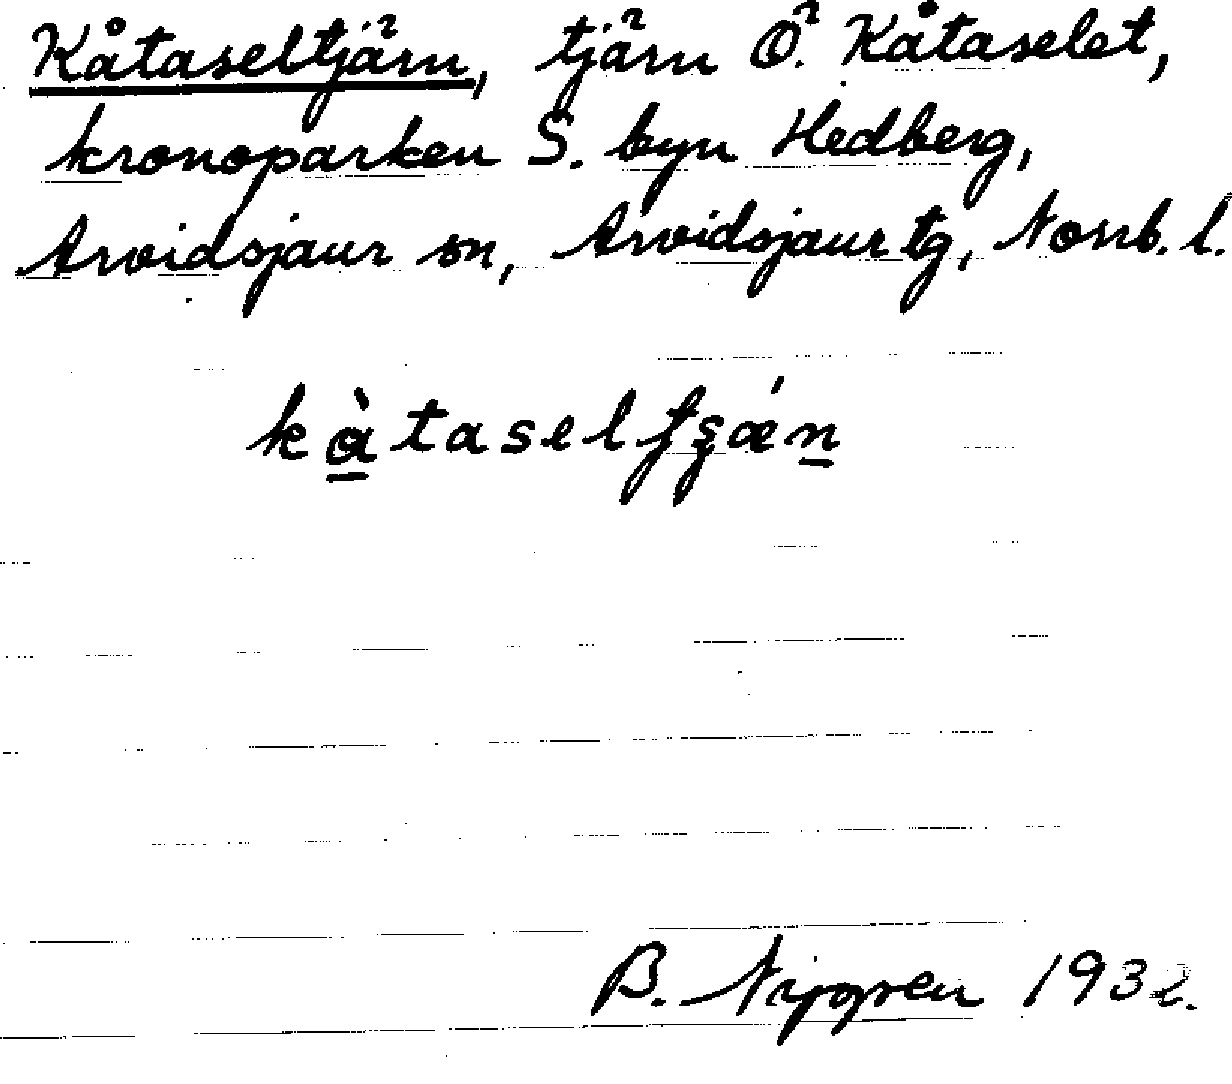 Kåtaseltjärn, tjärn Ö. Kåtaselet,
kronoparken S. byn Hedberg,
Arvidsjaur sn, Arvidsjaur tg, Norrb. l.
kàtaselʃʒǽn
B. Nygren 1932.